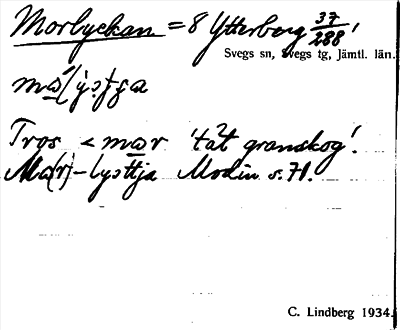 Morlyckan = 8 Ytterberg 37/288
Svegs sn, Svegs tg, Jämtl. län.
Tros < mar 'tät granskog'.
Ma(r)-lysttja Modin s. 71.
C. Lindberg 1934.